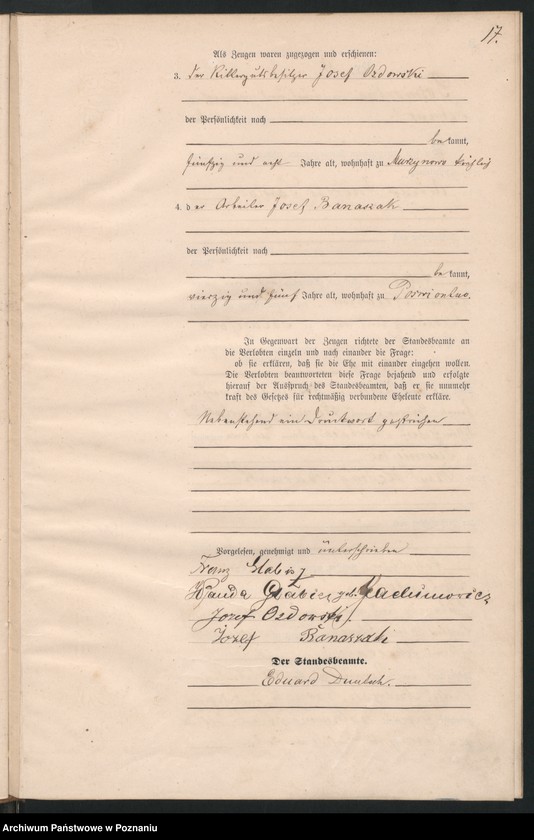 17.
Als Zeugen waren zugezogen und erschienen:
3. der Rittergutsbesitzer Josef Ozdowski
der Persönlichkeit nach
bekannt,
fünfzig und acht Jahre alt, wohnhaft zu
4. der Arbeiter Josef Banaszak
der Persönlichkeit nach
bekannt,
vierzig und fünf Jahre alt, wohnhaft zu
In Gegenwart der Zeugen richtete der Standesbeamte an
die Verlobten einzeln und nach einander die Frage:
ob sie erklären, daß sie die Ehe mit einander eingehen wollen.
Die Verlobten beantworteten diese Frage bejahend und erfolgte
hierauf der Ausspruch des Standesbeamten, daß er sie nunmehr
kraft des Gesetzes für rechtmäßig verbundene Eheleute erkläre.
Nebenstehend ein Druckwort gestrichen
Vorgelesen, genehmigt und unterschrieben
Franz Glabisz
Wanda Glabisz geb.
Jozef Ozdowski
Jozef Banaszak
Der Standesbeamte.
Eduard
Archiwum Państwowe w Poznaniu